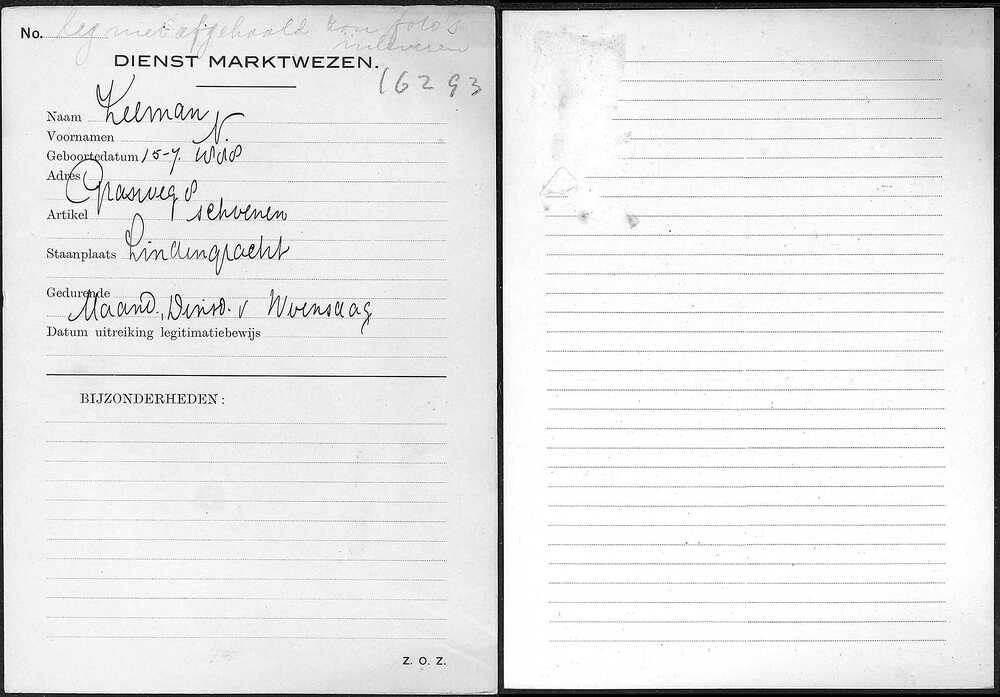 No. Leg niet afgehaald kon foto's
inleveren
DIENST MARKTWEZEN.
16293
Naam Leeman
Voornamen N.
Geboortedatum 15-7. 1888
Adres
Grasweg 8
Artikel schoenen
Staanplaats Lindengracht
Gedurende
Maand., Dinsd. v Woensdag
Datum uitreiking legitimatiebewijs
BIJZONDERHEDEN:
Z. O. Z.